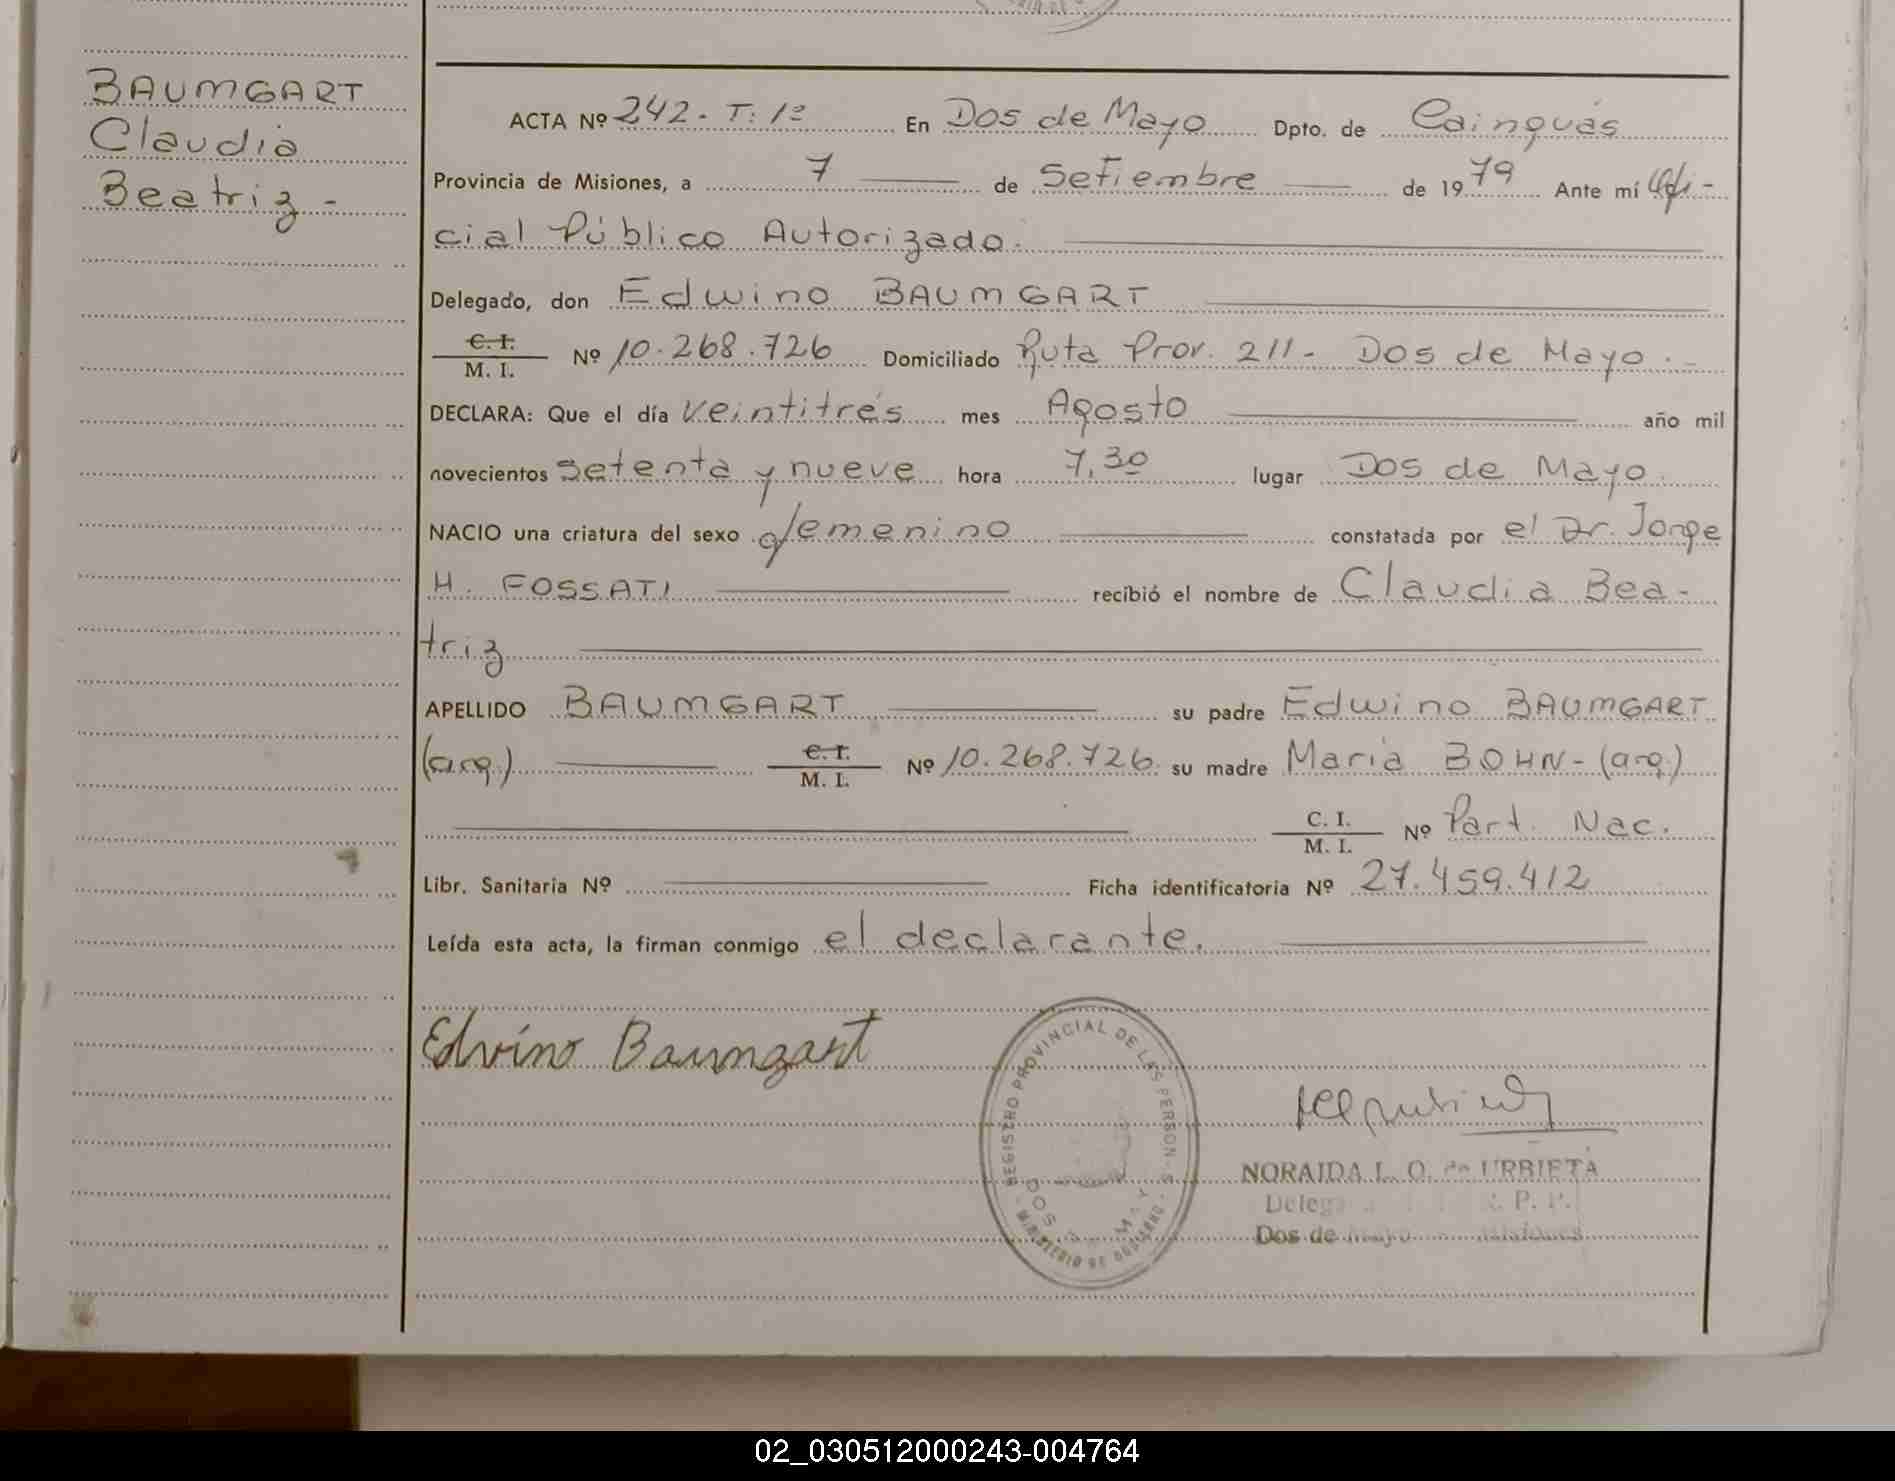 BAUMGART
Claudia
Beatriz -
ACTA Nº 242. T: 1º En Dos de Mayo Dpto. de Cainguás
Provincia de Misiones, a 7 de Setiembre de 1979 Ante mí Ofi-
cial Público Autorizado.
Delegado, don Edwino BAUMGART
C. I.
M. I. Nº 10.268.726 Domiciliado Ruta Prov. 211 - Dos de Mayo. -
DECLARA: Que el día veintitrés mes Agosto año mil
novecientos setenta y nueve hora 7,30 lugar Dos de Mayo.
NACIO una criatura del sexo femenino constatada por el Dr. Jorge
H. FOSSATI recibió el nombre de Claudia Bea-
triz
APELLIDO BAUMGART su padre Edwino BAUMGART
(arg.) C. I. M. I. Nº 10.268.726. su madre María BOHN - (arg.)
C. I. M. I. Nº Part. Nac.
Libr. Sanitaria Nº Ficha identificatoria Nº 27.459.412
Leída esta acta, la firman conmigo el declarante.
Edvino Baumgart
REGISTRO PROVINCIAL DE LAS PERSONAS
DOS DE MAYO
MINISTERIO DE GOBIERNO
NORAIDA L. O. de URBIETA
Dos de Mayo Misiones
02_030512000243-004764